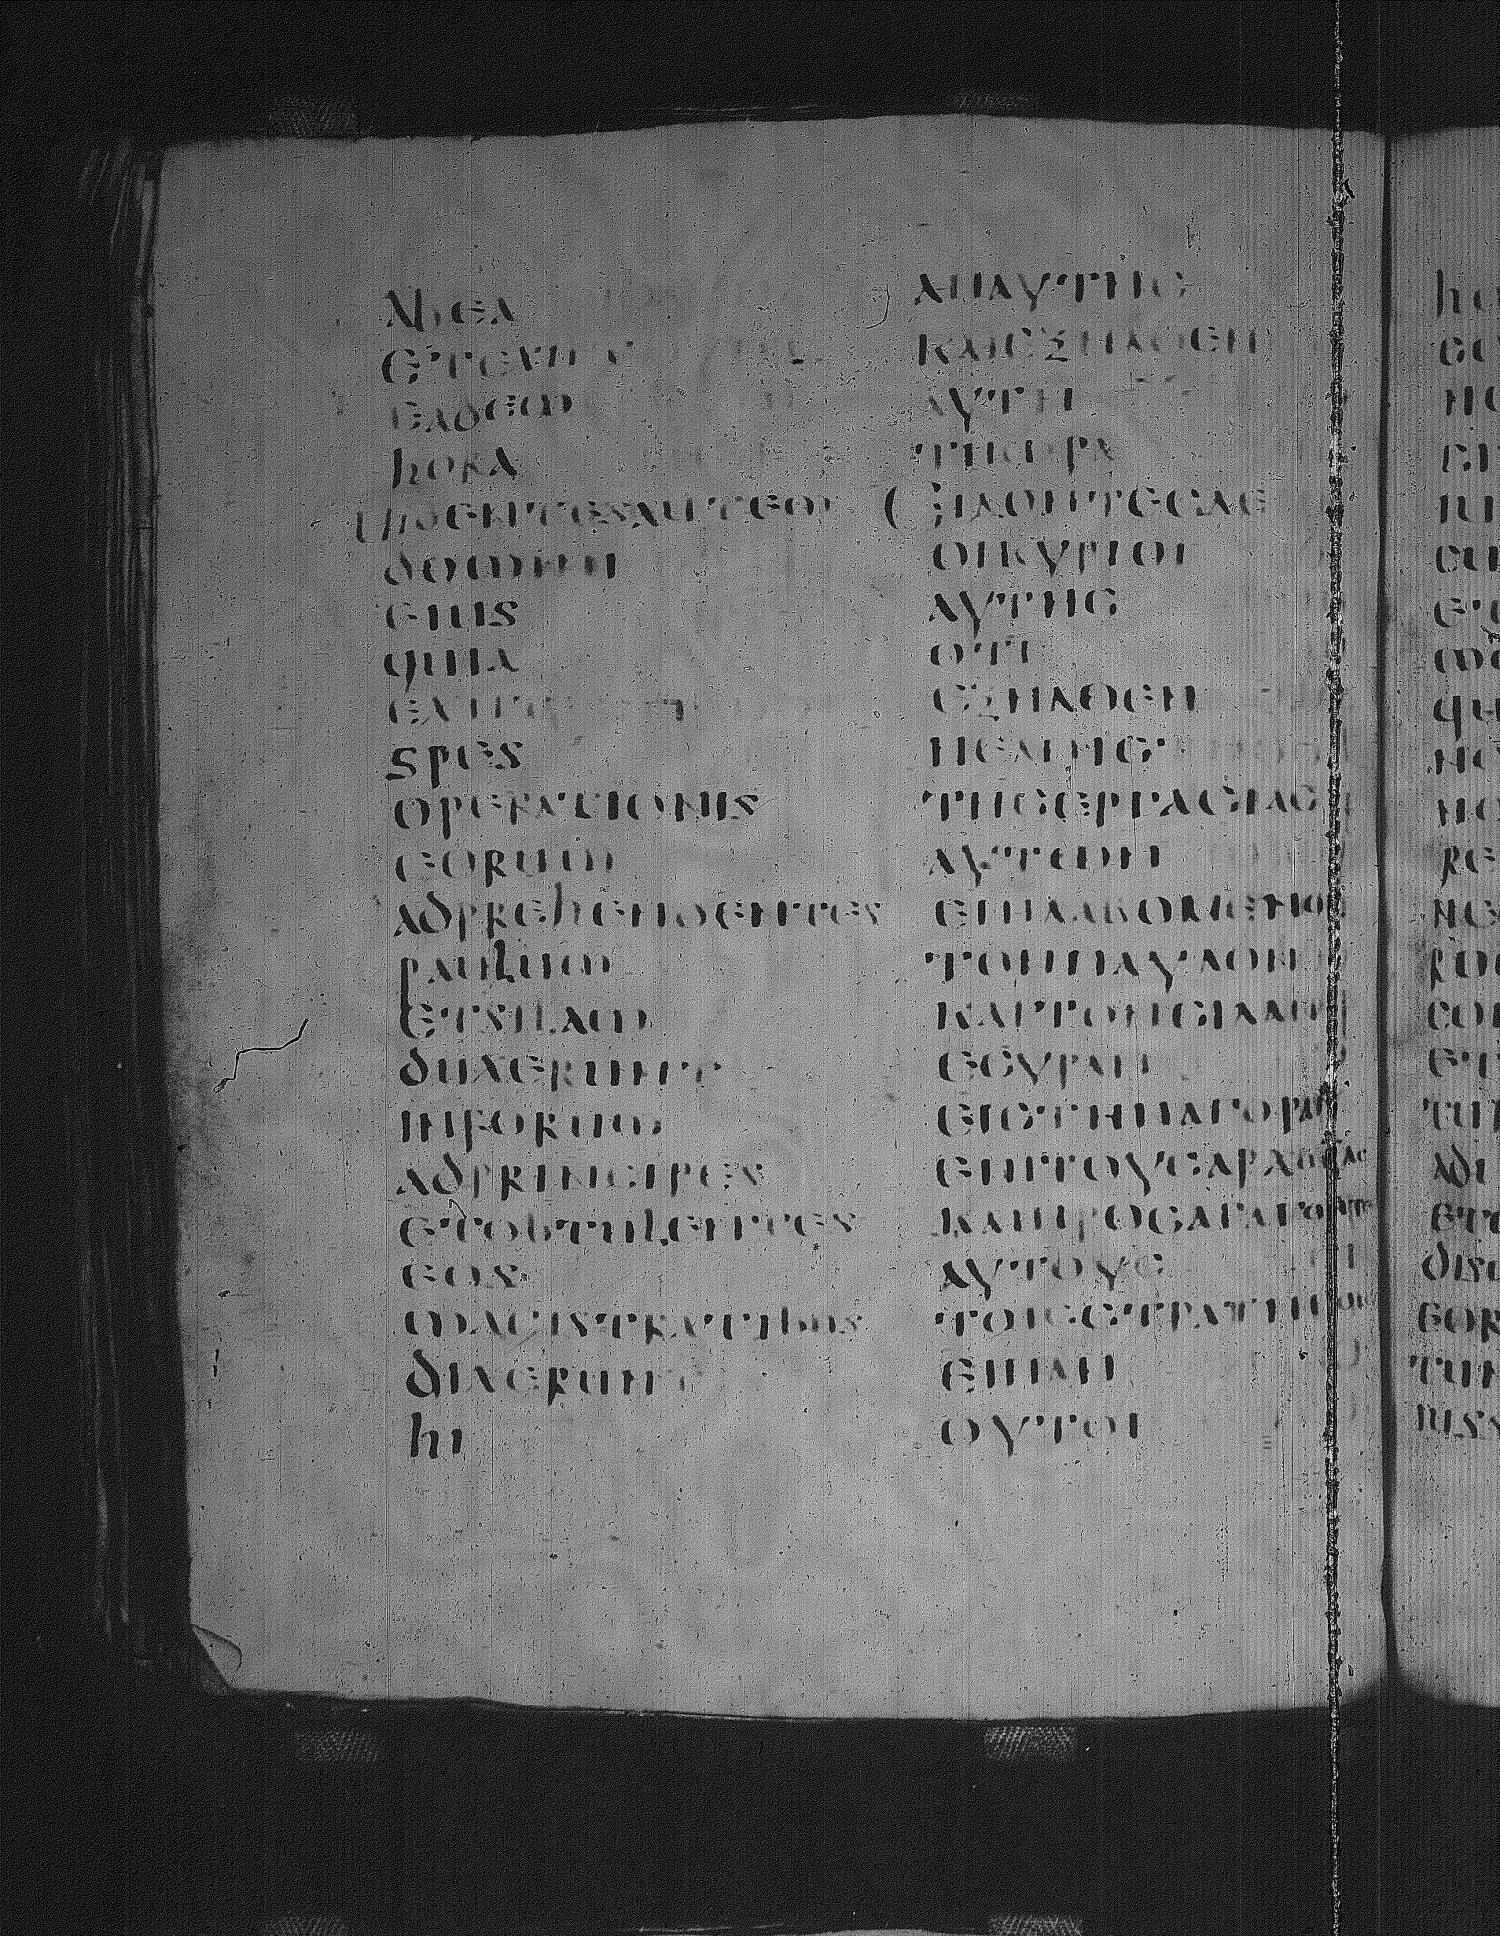 ab ea
et exiit
eadem
hora
uidentes autem
domini
eius
quia
exiit
spes
operationis
eorum
adprehendentes
paulum
et silam
duxerunt
in forum
ad principes
et obtulentes
eos
magistratibus
dixerunt
hi
ΑΠΑΥΤΗϹ
ΚΑΙΕΞΗΛΘΕΝ
ΑΥΤΗ
ΤΗΩΡΑ
ΙΔΟΝΤΕϹΔΕ
ΟΙΚΥΡΙΟΙ
ΑΥΤΗϹ
ΟΤΙ
ΕΞΗΛΘΕΝ
ΗΕΛΠΙϹ
ΤΗϹΕΡΓΑϹΙΑϹ
ΑΥΤΩΝ
ΕΠΙΛΑΒΟΜΕΝΟΙ
ΤΟΝΠΑΥΛΟΝ
ΚΑΙΤΟΝϹΙΛΑΝ
ΕϹΥΡΑΝ
ΕΙϹΤΗΝΑΓΟΡΑΝ
ΕΠΙΤΟΥϹΑΡΧΟΝΤΑϹ
ΚΑΙΠΡΟϹΑΓΑΓΟΝΤΕϹ
ΑΥΤΟΥϹ
ΤΟΙϹϹΤΡΑΤΗΓΟΙϹ
ΕΙΠΑΝ
ΟΥΤΟΙ